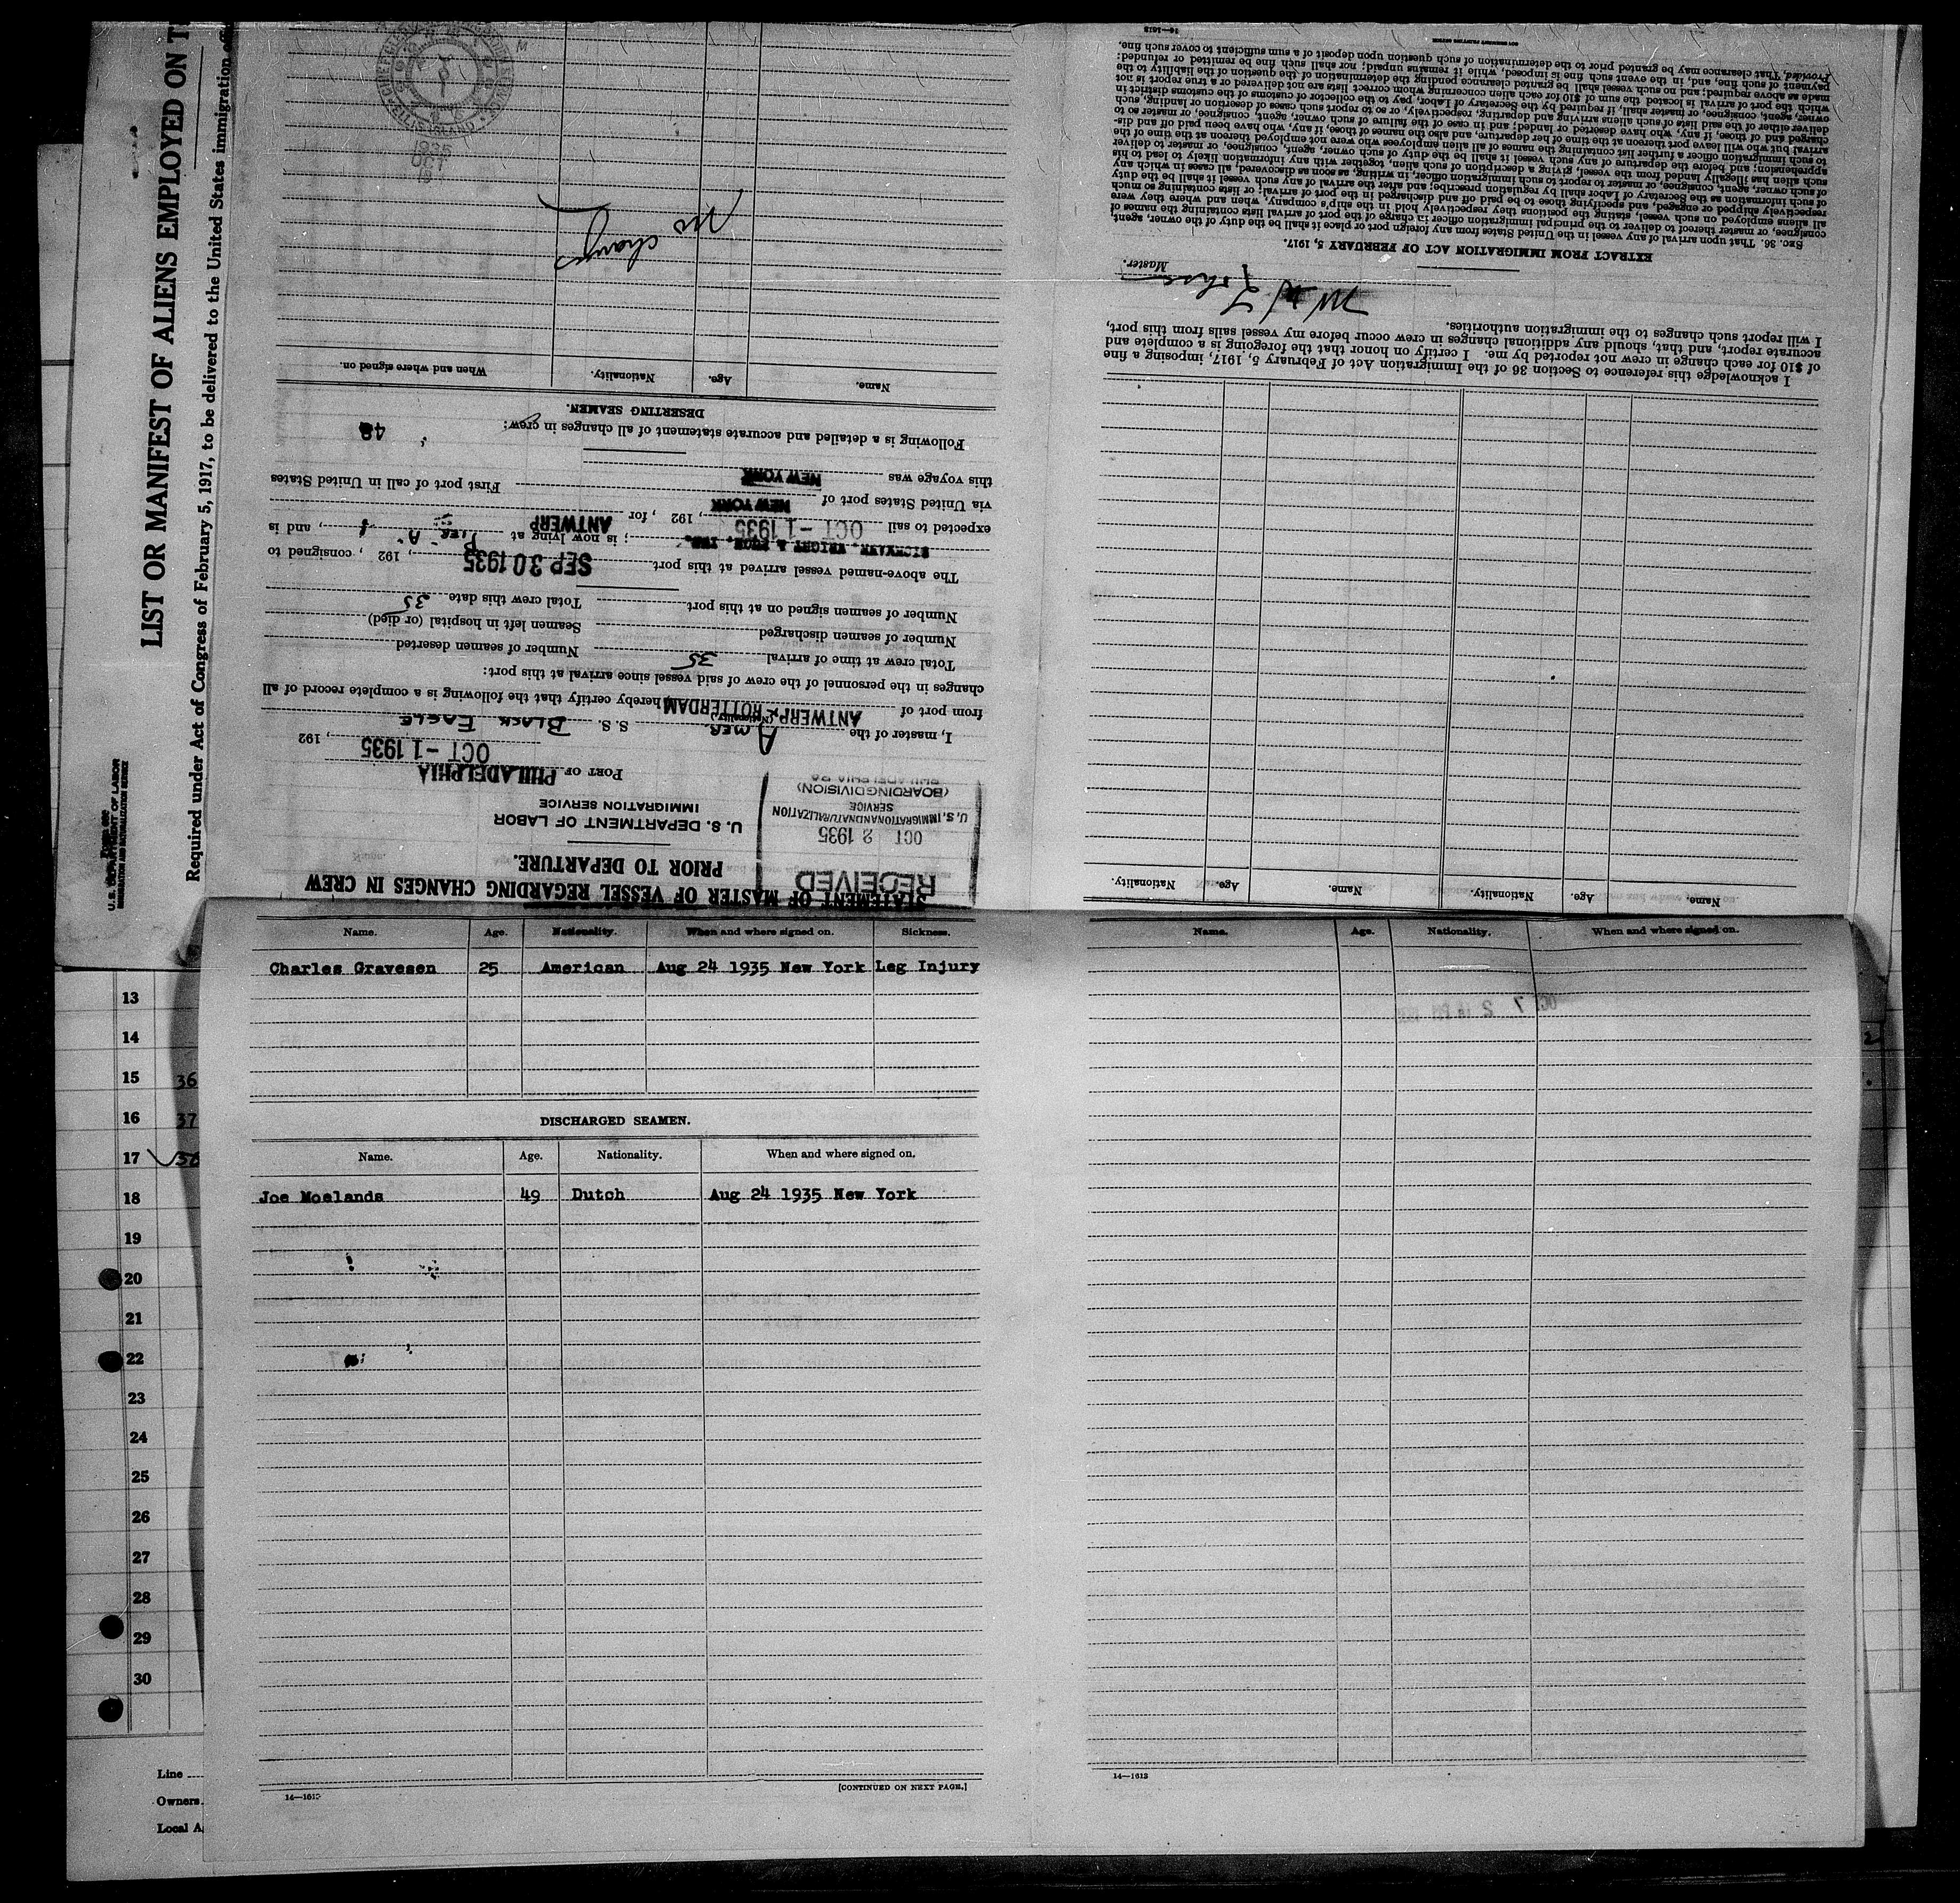 LIST OR MANIFEST OF ALIENS EMPLOYED ON T
Required under Act of Congress of February 5, 1917, to be delivered to the United States immigration
U. S. DEPARTMENT OF LABOR
IMMIGRATION AND NATURALIZATION SERVICE
STATEMENT OF MASTER OF VESSEL REGARDING CHANGES IN CREW
PRIOR TO DEPARTURE.
RECEIVED
OCT 2 1935
U.S. IMMIGRATION AND NATURALIZATION
SERVICE
(BOARDING DIVISION)
PHILADELPHIA PA
U. S. DEPARTMENT OF LABOR
IMMIGRATION SERVICE
PORT OF PHILADELPHIA
OCT -1 1935, 192
I, master of the AMER. (Nationality) S. S. BLACK EAGLE
from port of ANTWERP ROTTERDAM hereby certify that the following is a complete record of all
changes in the personnel of the crew of said vessel since arrival at this port:
Total crew at time of arrival 35 Number of seamen deserted
Number of seamen discharged Seamen left in hospital (or died)
Number of seamen signed on at this port Total crew this date 35
The above-named vessel arrived at this port SEP 30 1935, 192 , consigned to
WRIGHT & ; is now lying at PIER A , and is
expected to sail OCT -1 1935, 192 , for ANTWERP
via United States port of NEW YORK First port of call in United States
this voyage was NEW YORK
Following is a detailed and accurate statement of all changes in crew:
DESERTING SEAMEN.
Name. Age. Nationality. When and where signed on.
No change
ELLIS ISLAND
1935
OCT
Name. Age. Nationality. Name. Age. Nationality.
I acknowledge this reference to Section 36 of the Immigration Act of February 5, 1917, imposing a fine
of $10 for each change in crew not reported by me. I certify on honor that the foregoing is a complete and
accurate report, and that, should any additional changes in crew occur before my vessel sails from this port,
I will report such changes to the immigration authorities.
Master.
EXTRACT FROM IMMIGRATION ACT OF FEBRUARY 5, 1917.
SEC. 36. That upon arrival of any vessel in the United States from any foreign port or place it shall be the duty of the owner, agent,
consignee, or master thereof to deliver to the principal immigration officer in charge of the port of arrival lists containing the names of
all aliens employed on such vessel, stating the positions they respectively hold in the ship's company, when and where they were
respectively shipped or engaged, and specifying those to be paid off and discharged in the port of arrival; or lists containing so much
of such information as the Secretary of Labor shall by regulation prescribe; and after the arrival of any such vessel it shall be the duty
of such owner, agent, consignee, or master to report to such immigration officer, in writing, as soon as discovered, all cases in which any
such alien has illegally landed from the vessel, giving a description of such alien, together with any information likely to lead to his
apprehension; and before the departure of any such vessel it shall be the duty of such owner, agent, consignee, or master to deliver
to such immigration officer a further list containing the names of all alien employees who were not employed thereon at the time of the
arrival but who will leave port thereon at the time of her departure, and also the names of those, if any, who have been paid off and dis-
charged and of those, if any, who have deserted or landed; and in case of the failure of such owner, agent, consignee, or master so
deliver either of the said lists of such aliens arriving and departing, respectively, or so to report such cases of desertion or landing, such
owner, agent, consignee, or master shall, if required by the Secretary of Labor, pay to the collector of customs of the customs district in
which the port of arrival is located the sum of $10 for each alien concerning whom correct lists are not delivered or a true report is not
made as above required; and no such vessel shall be granted clearance pending the determination of the question of the liability to the
payment of such fine, and, in the event such fine is imposed, while it remains unpaid; nor shall such fine be remitted or refunded:
Provided, That clearance may be granted prior to the determination of such question upon deposit of a sum sufficient to cover such fine.
Name. Age. Nationality. When and where signed on. Sickness.
Charles Gravesen 25 American Aug 24 1935 New York Leg Injury
DISCHARGED SEAMEN.
Name. Age. Nationality. When and where signed on.
Joe Moelands 49 Dutch Aug 24 1935 New York
[CONTINUED ON NEXT PAGE.]
14—1613
Name. Age. Nationality. When and where signed on.
14—1613
13
14
15 36
16 37
17 38
18
19
20
21
22
23
24
25
26
27
28
29
30
Line
Owners
Local A